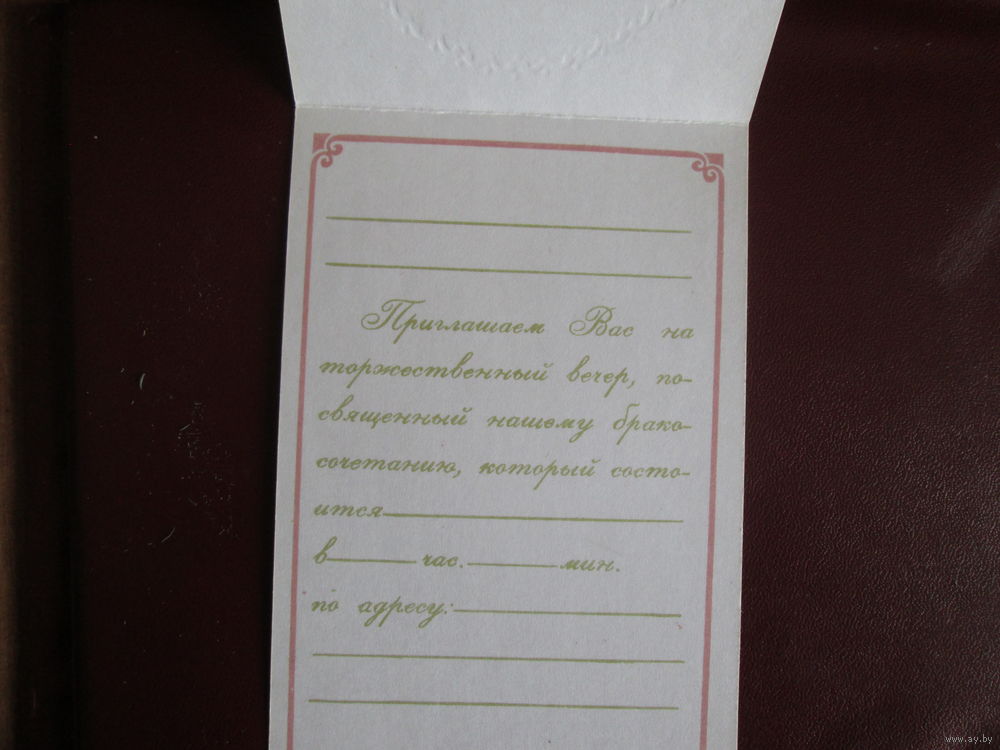 Приглашаем Вас на
торжественный вечер, по-
священный нашему брако-
сочетанию, который состо-
ится
в час. мин.
по адресу:
www.ay.by